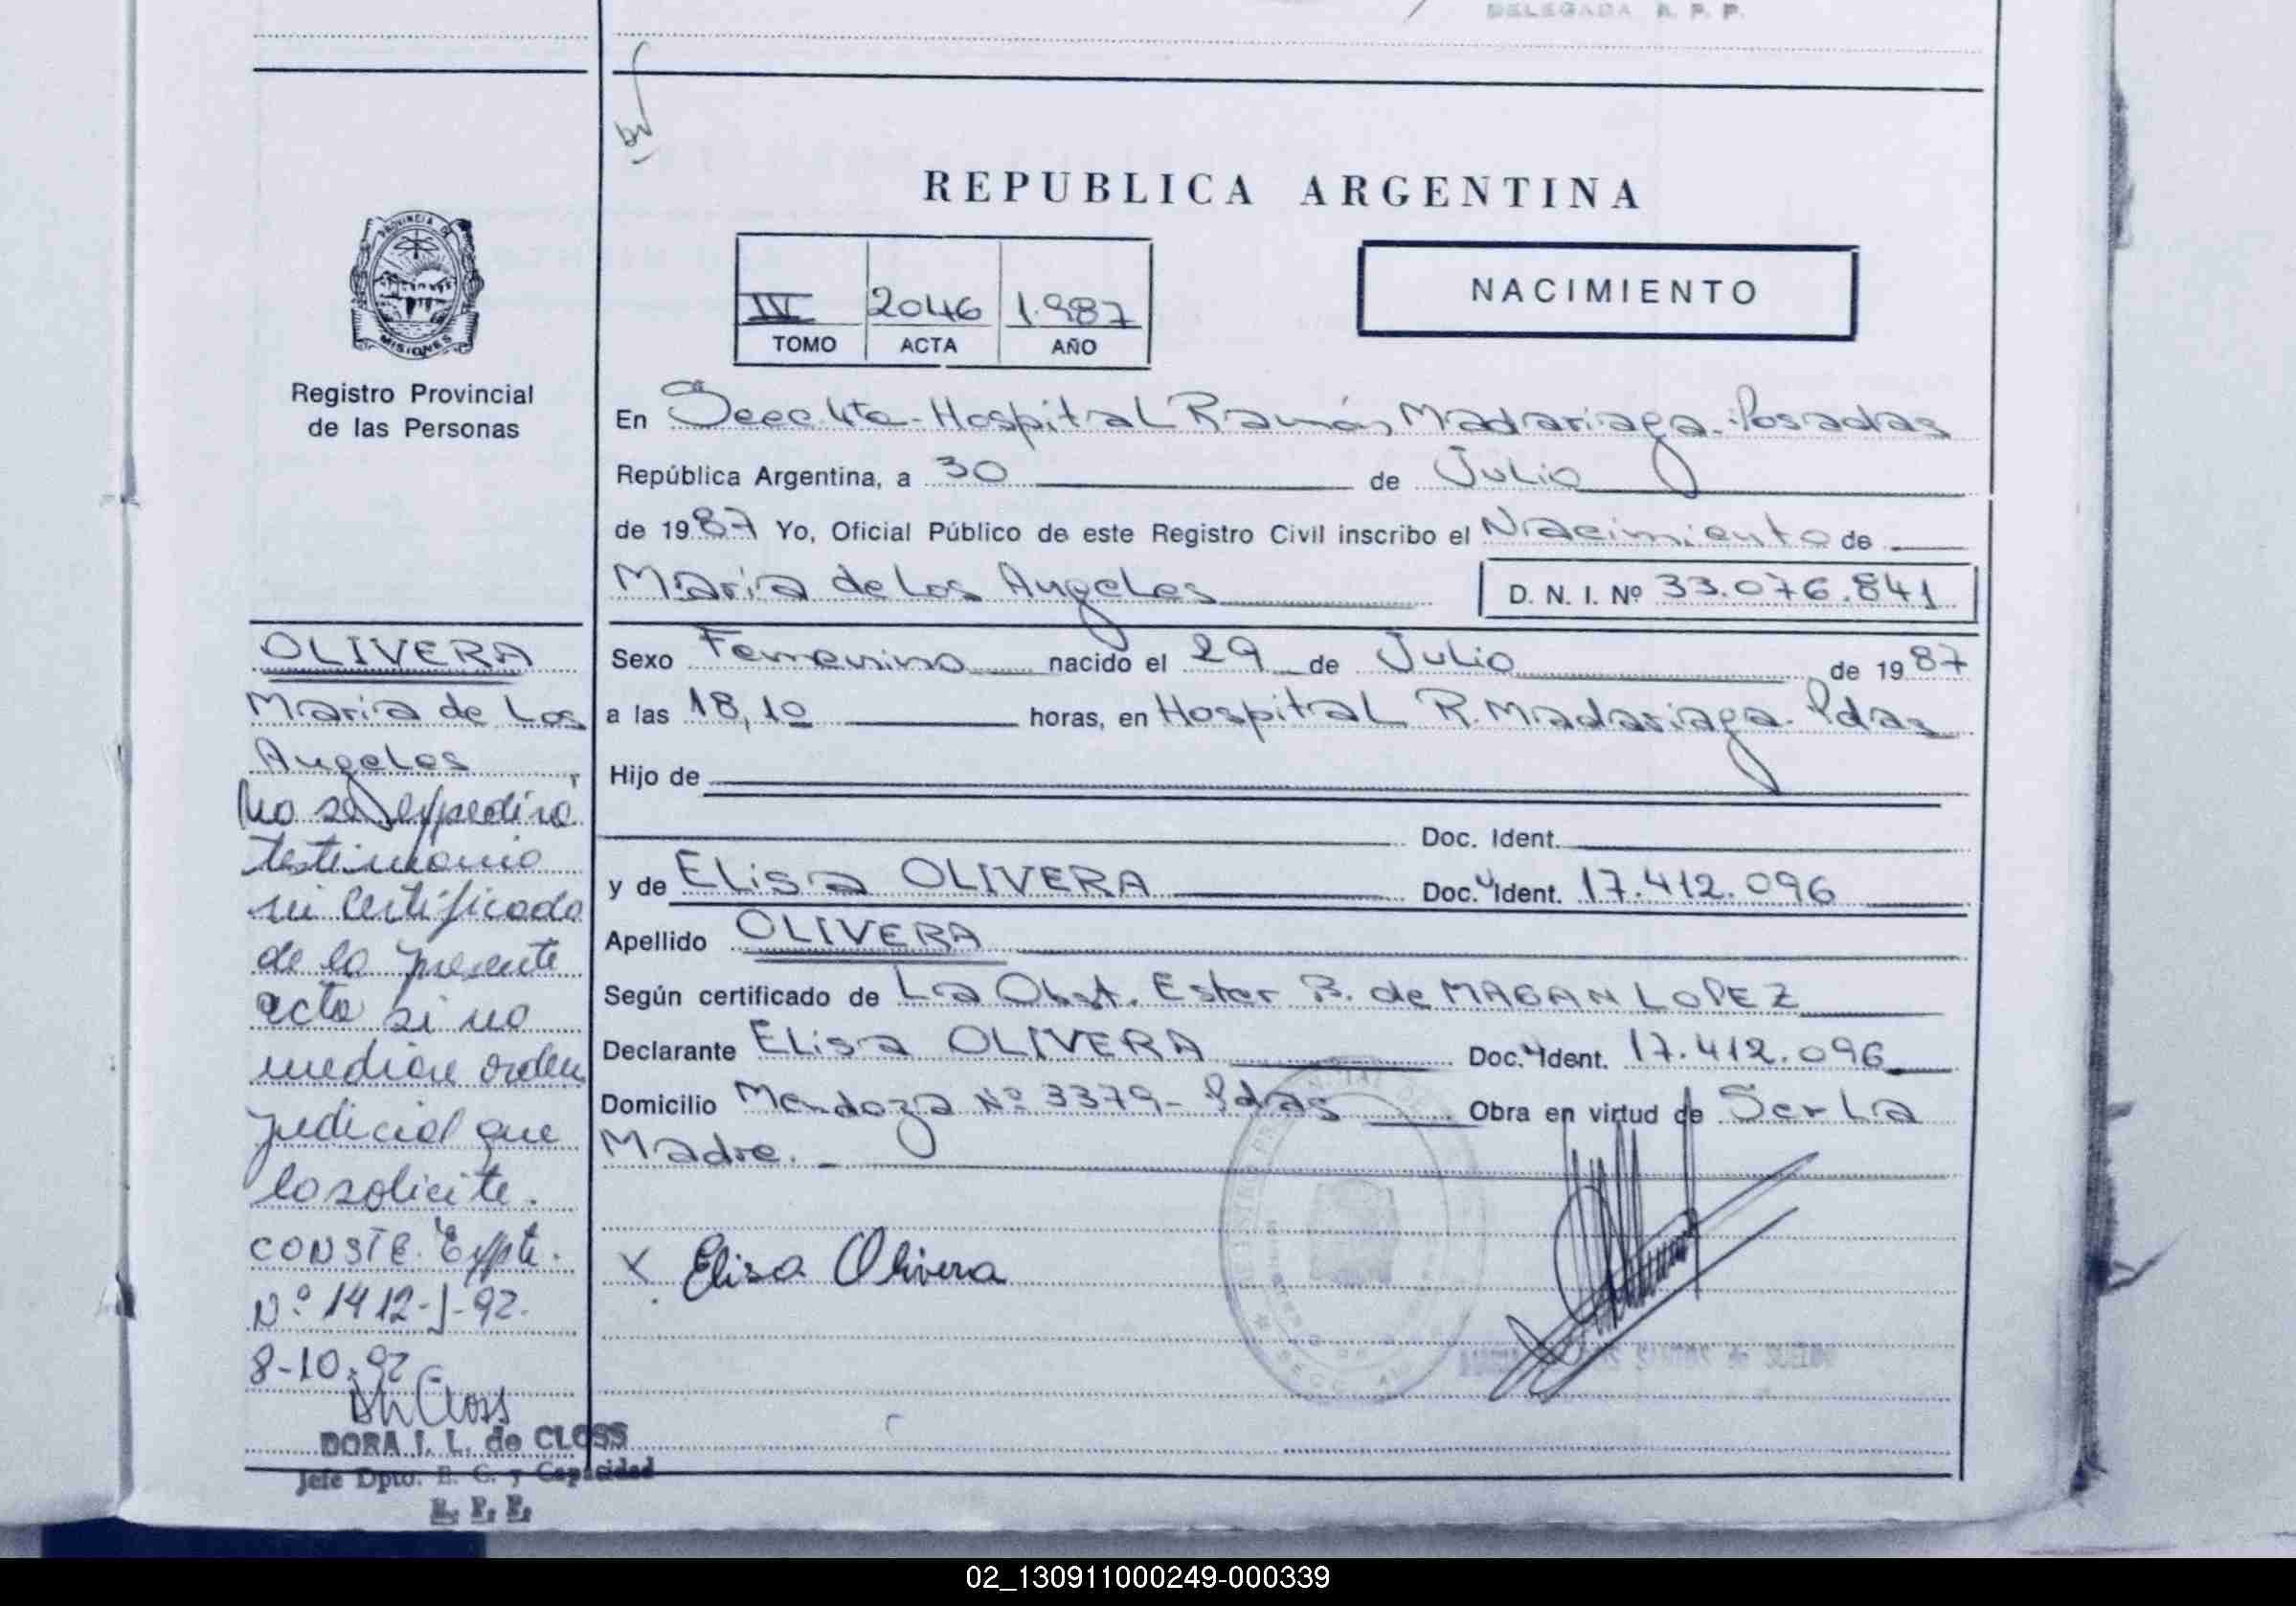 DELEGADA R. P. P.
REPUBLICA ARGENTINA
PROVINCIA DE
MISIONES
Registro Provincial
de las Personas
IV 2046 1.987
TOMO ACTA AÑO
NACIMIENTO
En Secc. 4ta - Hospital Ramón Madariaga - Posadas
República Argentina, a 30 de Julio
de 1987 Yo, Oficial Público de este Registro Civil inscribo el Nacimiento de
María de Los Angeles D. N. I. Nº 33.076.841
Sexo Femenino nacido el 29 de Julio de 1987
a las 18,10 horas, en Hospital R. Madariaga - Pdas
Hijo de
Doc. Ident.
y de Elisa OLIVERA Doc. Ident. 17.412.096
Apellido OLIVERA
Según certificado de La Obst. Ester B. de MAGAN LOPEZ
Declarante Elisa OLIVERA Doc. Ident. 17.412.096
Domicilio Mendoza Nº 3379 - Pdas Obra en virtud de Ser La
Madre. -
X Elisa Olivera
OLIVERA
María de Los
Angeles
No se expedirá
testimonio
ni certificado
de la presente
acta si no
mediare orden
judicial que
lo solicite.
CONSTE. Expte.
Nº 1412-J-92.
8-10-92
DORA I. L. de CLOSS
Jefe Dpto. E. C. y Capacidad
R. P. P.
02_130911000249-000339